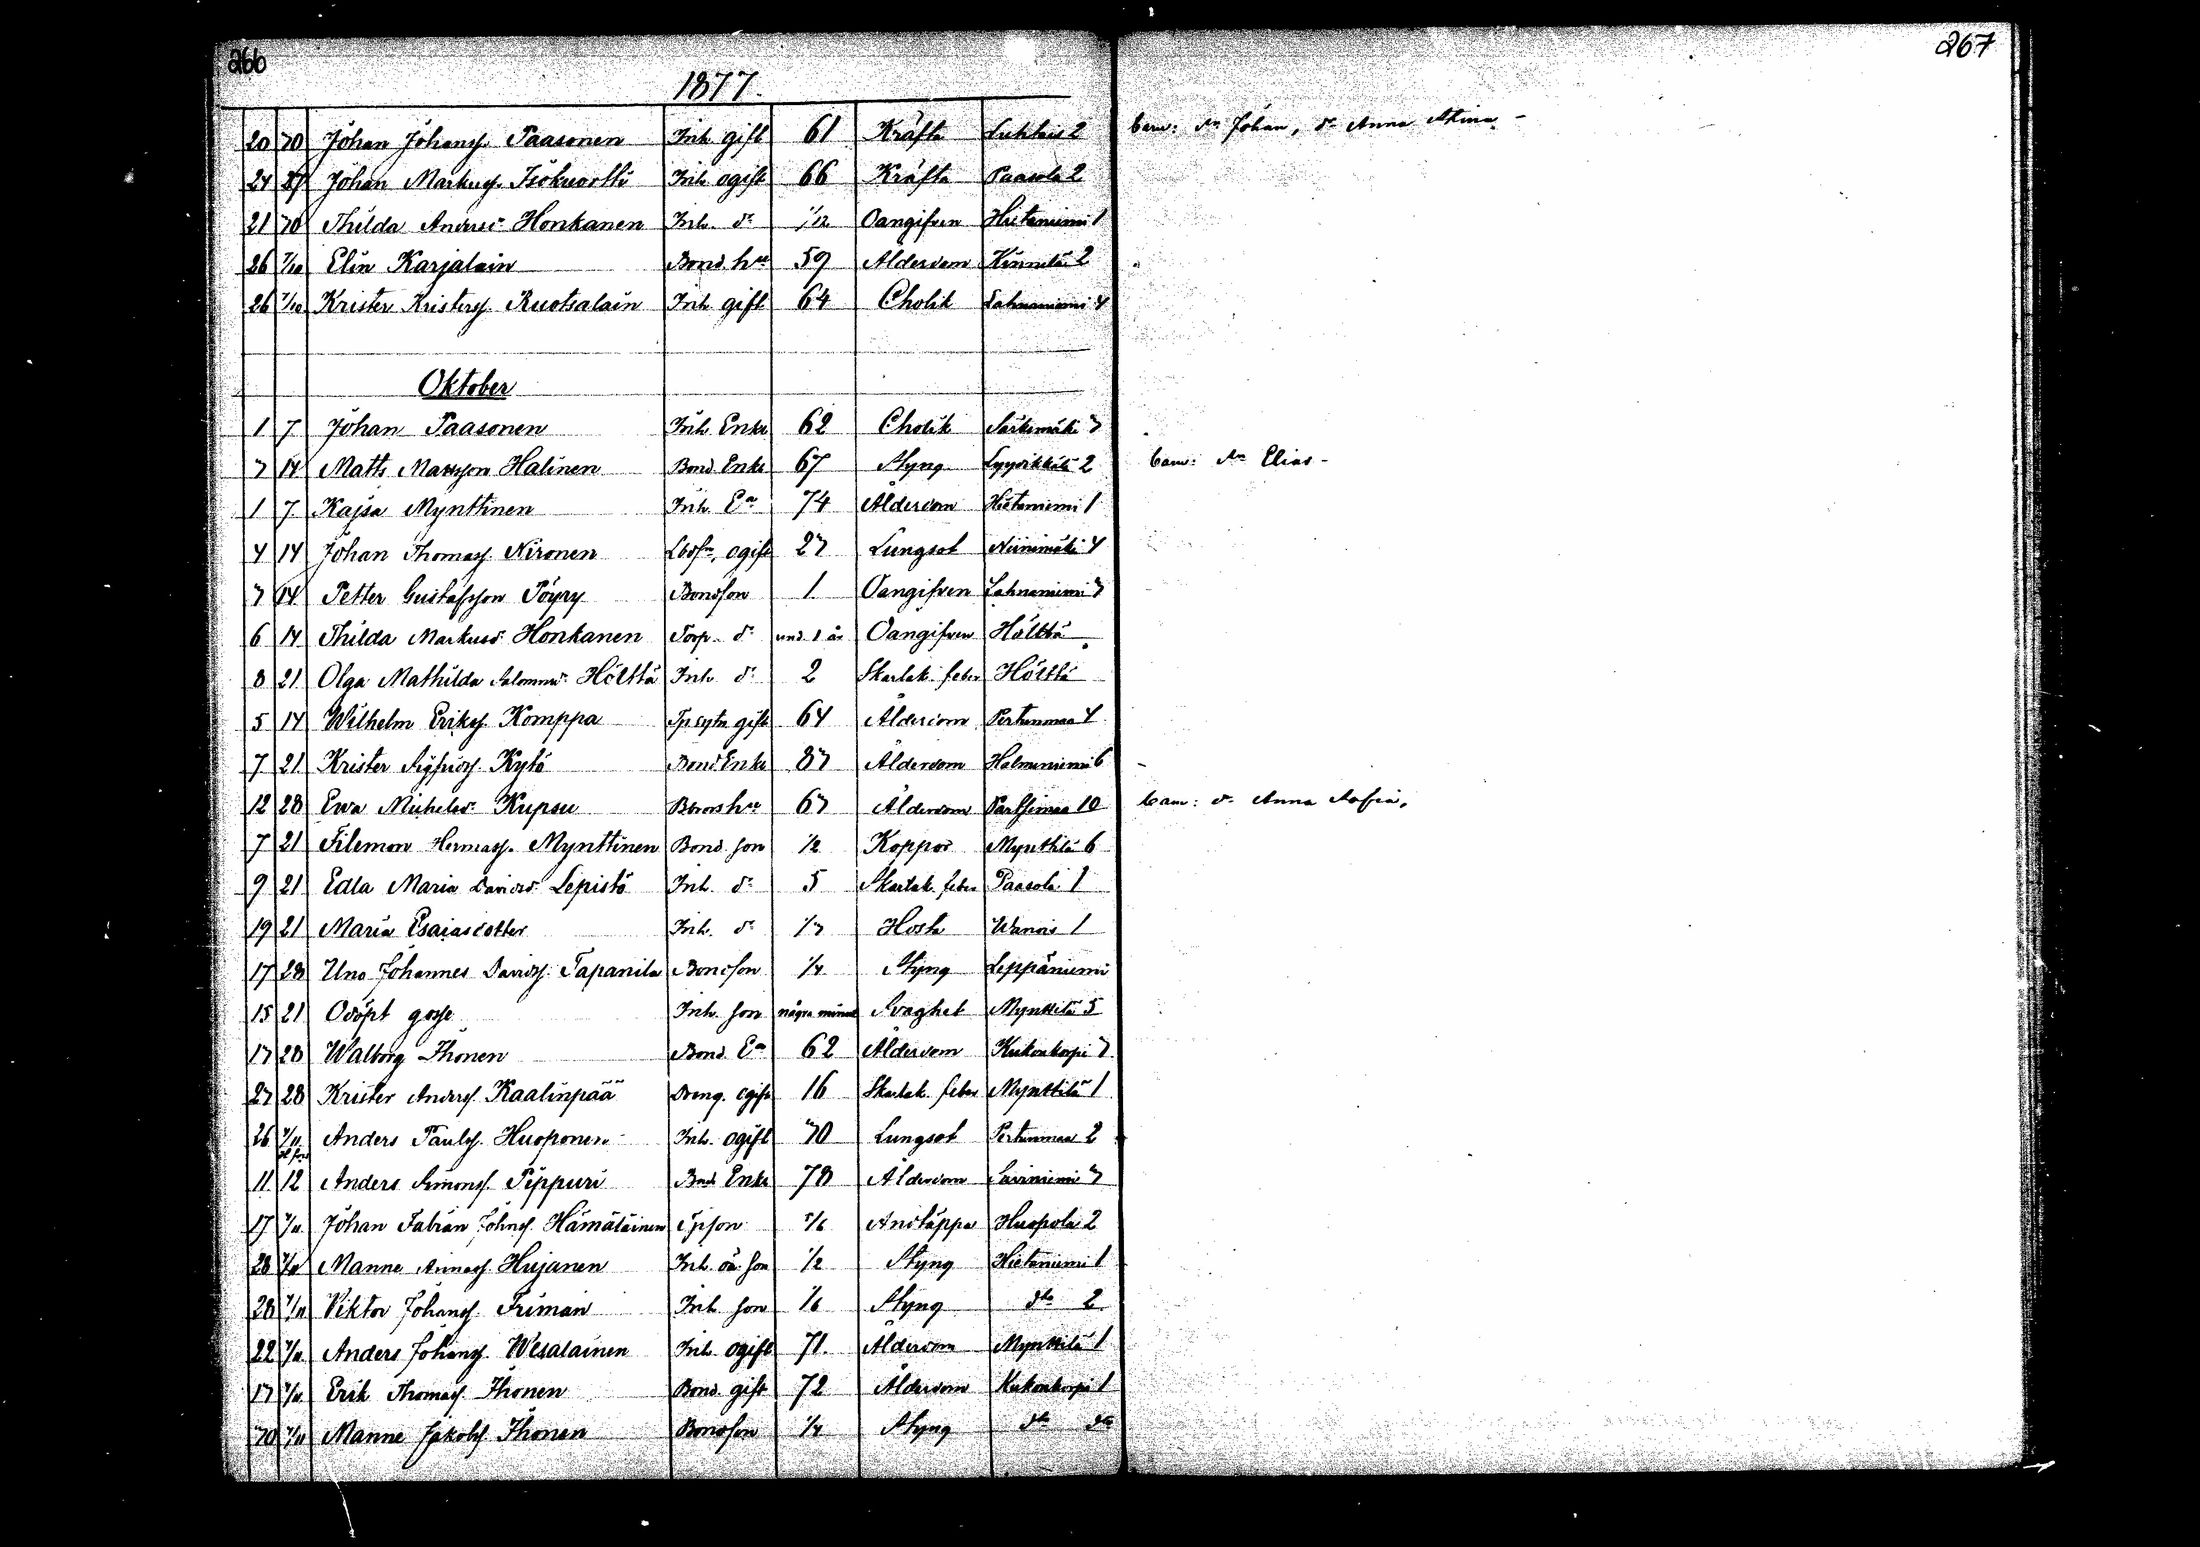 266
267
1877.
20 30 Johan Johansf. Paasonen Inh. gift 61 Kräfta Luhtais 2 barn: Sn Johan, dr Anna Stina. -
24 Johan Markusf. Isokuortti Inh ogift 66 Kräfta Paasola 2
21 30 Thilda Andersdr Honkanen Inh. dr 1/12 Oangifven Hietaniemi 1
26 7/10 Elin Karjalain Bond. hu 59 Ålderdom Kinnilä 2
26 7/10 Krister Kristersf. Ruotsalain Inh gift 64 Cholik Lahnaniemi 4
Oktober
1 7 Johan Paasonen Inh Enkl 62 Cholik Särkimäki 7
7 14 Matts Mattsson Halinen Bond Enkl 67 Styng Lyytikkälä 2 barn: Sn Elias -
1 7 Kajsa Mynttinen Inh. Ea 74 Ålderdom Hietaniemi 1
4 14 Johan Thomasf. Nironen ogift 27 Lungsot Niinimäki 4
7 14 Petter Gustafsson Pöyry Bondson 1 Oangifven Lahnaniemi 7
6 14 Thilda Markusd. Honkanen Torp. dr und. 1 år Oangifven Hölttä
8 21 Olga Mathilda Salomonsdr Hölttä Inh. dr 2 Skarlak. feber Hölttä
5 14 Wilhelm Eriksf. Komppa gift 64 Ålderdom Pertunmaa 4
7 21 Krister Sigfridsf. Kytö Bond Enkl 87 Ålderdom Halmeniemi 6
12 28 Ewa Michelsdr Kupsu hu 67 Ålderdom Parssimaa 10 barn: dr Anna Sofia.
7 21 Filemon Hermasf. Mynttinen Bond. son 1/2 Koppor Mynttilä 6
9 21 Edla Maria Davidsd. Lepistö Inh. dr 5 Skarlak. feber Paasola 1
19 21 Maria Esaiasdotter Inh. dr 1/7 Hosta 1
17 28 Uno Johannes Davidsf. Tapanila Bondson 1/4 Styng Leppäniemi
15 21 Odöpt gosse Inh. son några minut Svaghet Mynttilä 5
17 28 Walborg Ihonen Bond. Ea 62 Ålderdom Kuhonkorpi 7
27 28 Krister Andersf. Kaalinpää Dreng. ogift 16 Skarlak. feber Mynttilä 1
26 4/11 Anders Paulsf. Huoponen Inh. ogift 70 Lungsot Pertunmaa 2
11 12 Anders Simonsf. Pippuri Bond Enkl 78 Ålderdom Saviniemi 7
17 4/11 Johan Fabian Johansf. Hämäläinen Tpson 5/6 Andtäppa Huopola 2
28 4/11 Manne Annasf. Hujanen Inh. oä. son 1/2 Styng Hietaniemi 1
28 4/11 Viktor Johansf. Friman Inh son 1/6 Styng dto 2
22 4/11 Anders Johansf. Wesalainen Inh. ogift 71. Ålderdom Mynttilä 1
17 4/11 Erik Thomasf. Ihonen Bond. gift 72 Ålderdom Kuhonkorpi 1
30 4/11 Manne Jakobsf. Ihonen Bondson 1/4 Styng dto dto